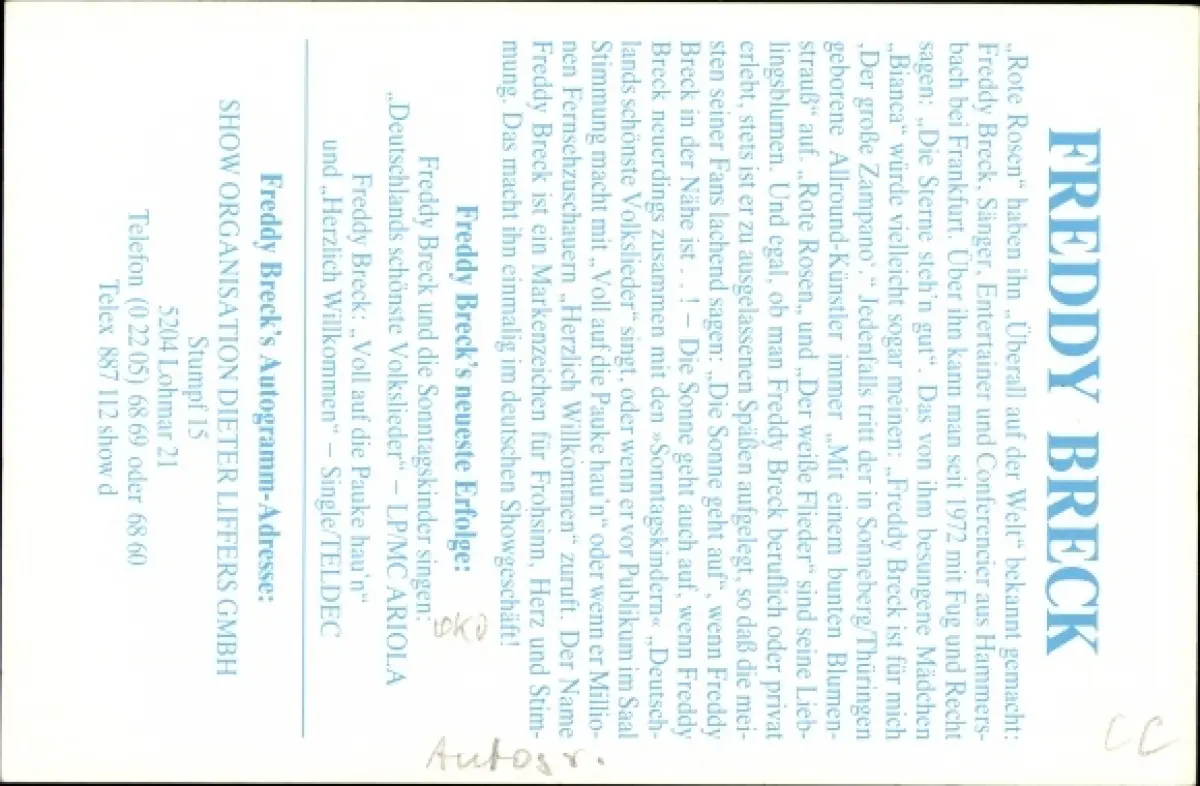 FREDDY BRECK
„Rote Rosen" haben ihn „Überall auf der Welt" bekannt gemacht:
Freddy Breck, Sänger, Entertainer und Conferencier aus Hammers-
bach bei Frankfurt. Über ihn kann man seit 1972 mit Fug und Recht
sagen: „Die Sterne steh'n gut". Das von ihm besungene Mädchen
„Bianca" würde vielleicht sogar meinen: „Freddy Breck ist für mich
‚Der große Zampano'." Jedenfalls tritt der in Sonneberg/Thüringen
geborene Allround-Künstler immer „Mit einem bunten Blumen-
strauß" auf. „Rote Rosen„ und „Der weiße Flieder" sind seine Lieb-
lingsblumen. Und egal, ob man Freddy Breck beruflich oder privat
erlebt, stets ist er zu ausgelassenen Späßen aufgelegt, so daß die mei-
sten seiner Fans lachend sagen: „Die Sonne geht auf", wenn Freddy
Breck in der Nähe ist . . ! – Die Sonne geht auch auf, wenn Freddy
Breck neuerdings zusammen mit den »Sonntagskindern« „Deutsch-
lands schönste Volkslieder" singt, oder wenn er vor Publikum im Saal
Stimmung macht mit „Voll auf die Pauke hau'n" oder wenn er Millio-
nen Fernsehzuschauern „Herzlich Willkommen" zuruft. Der Name
Freddy Breck ist ein Markenzeichen für Frohsinn, Herz und Stim-
mung. Das macht ihn einmalig im deutschen Showgeschäft!
Freddy Breck's neueste Erfolge:
Freddy Breck und die Sonntagskinder singen:
„Deutschlands schönste Volkslieder" – LP/MC ARIOLA
Freddy Breck: „Voll auf die Pauke hau'n"
und „Herzlich Willkommen" – Single/TELDEC
Freddy Breck's Autogramm-Adresse:
SHOW ORGANISATION DIETER LIFFERS GMBH
Stumpf 15
5204 Lohmar 21
Telefon (0 22 05) 68 69 oder 68 60
Telex 887 112 show d
Autogr.
CC